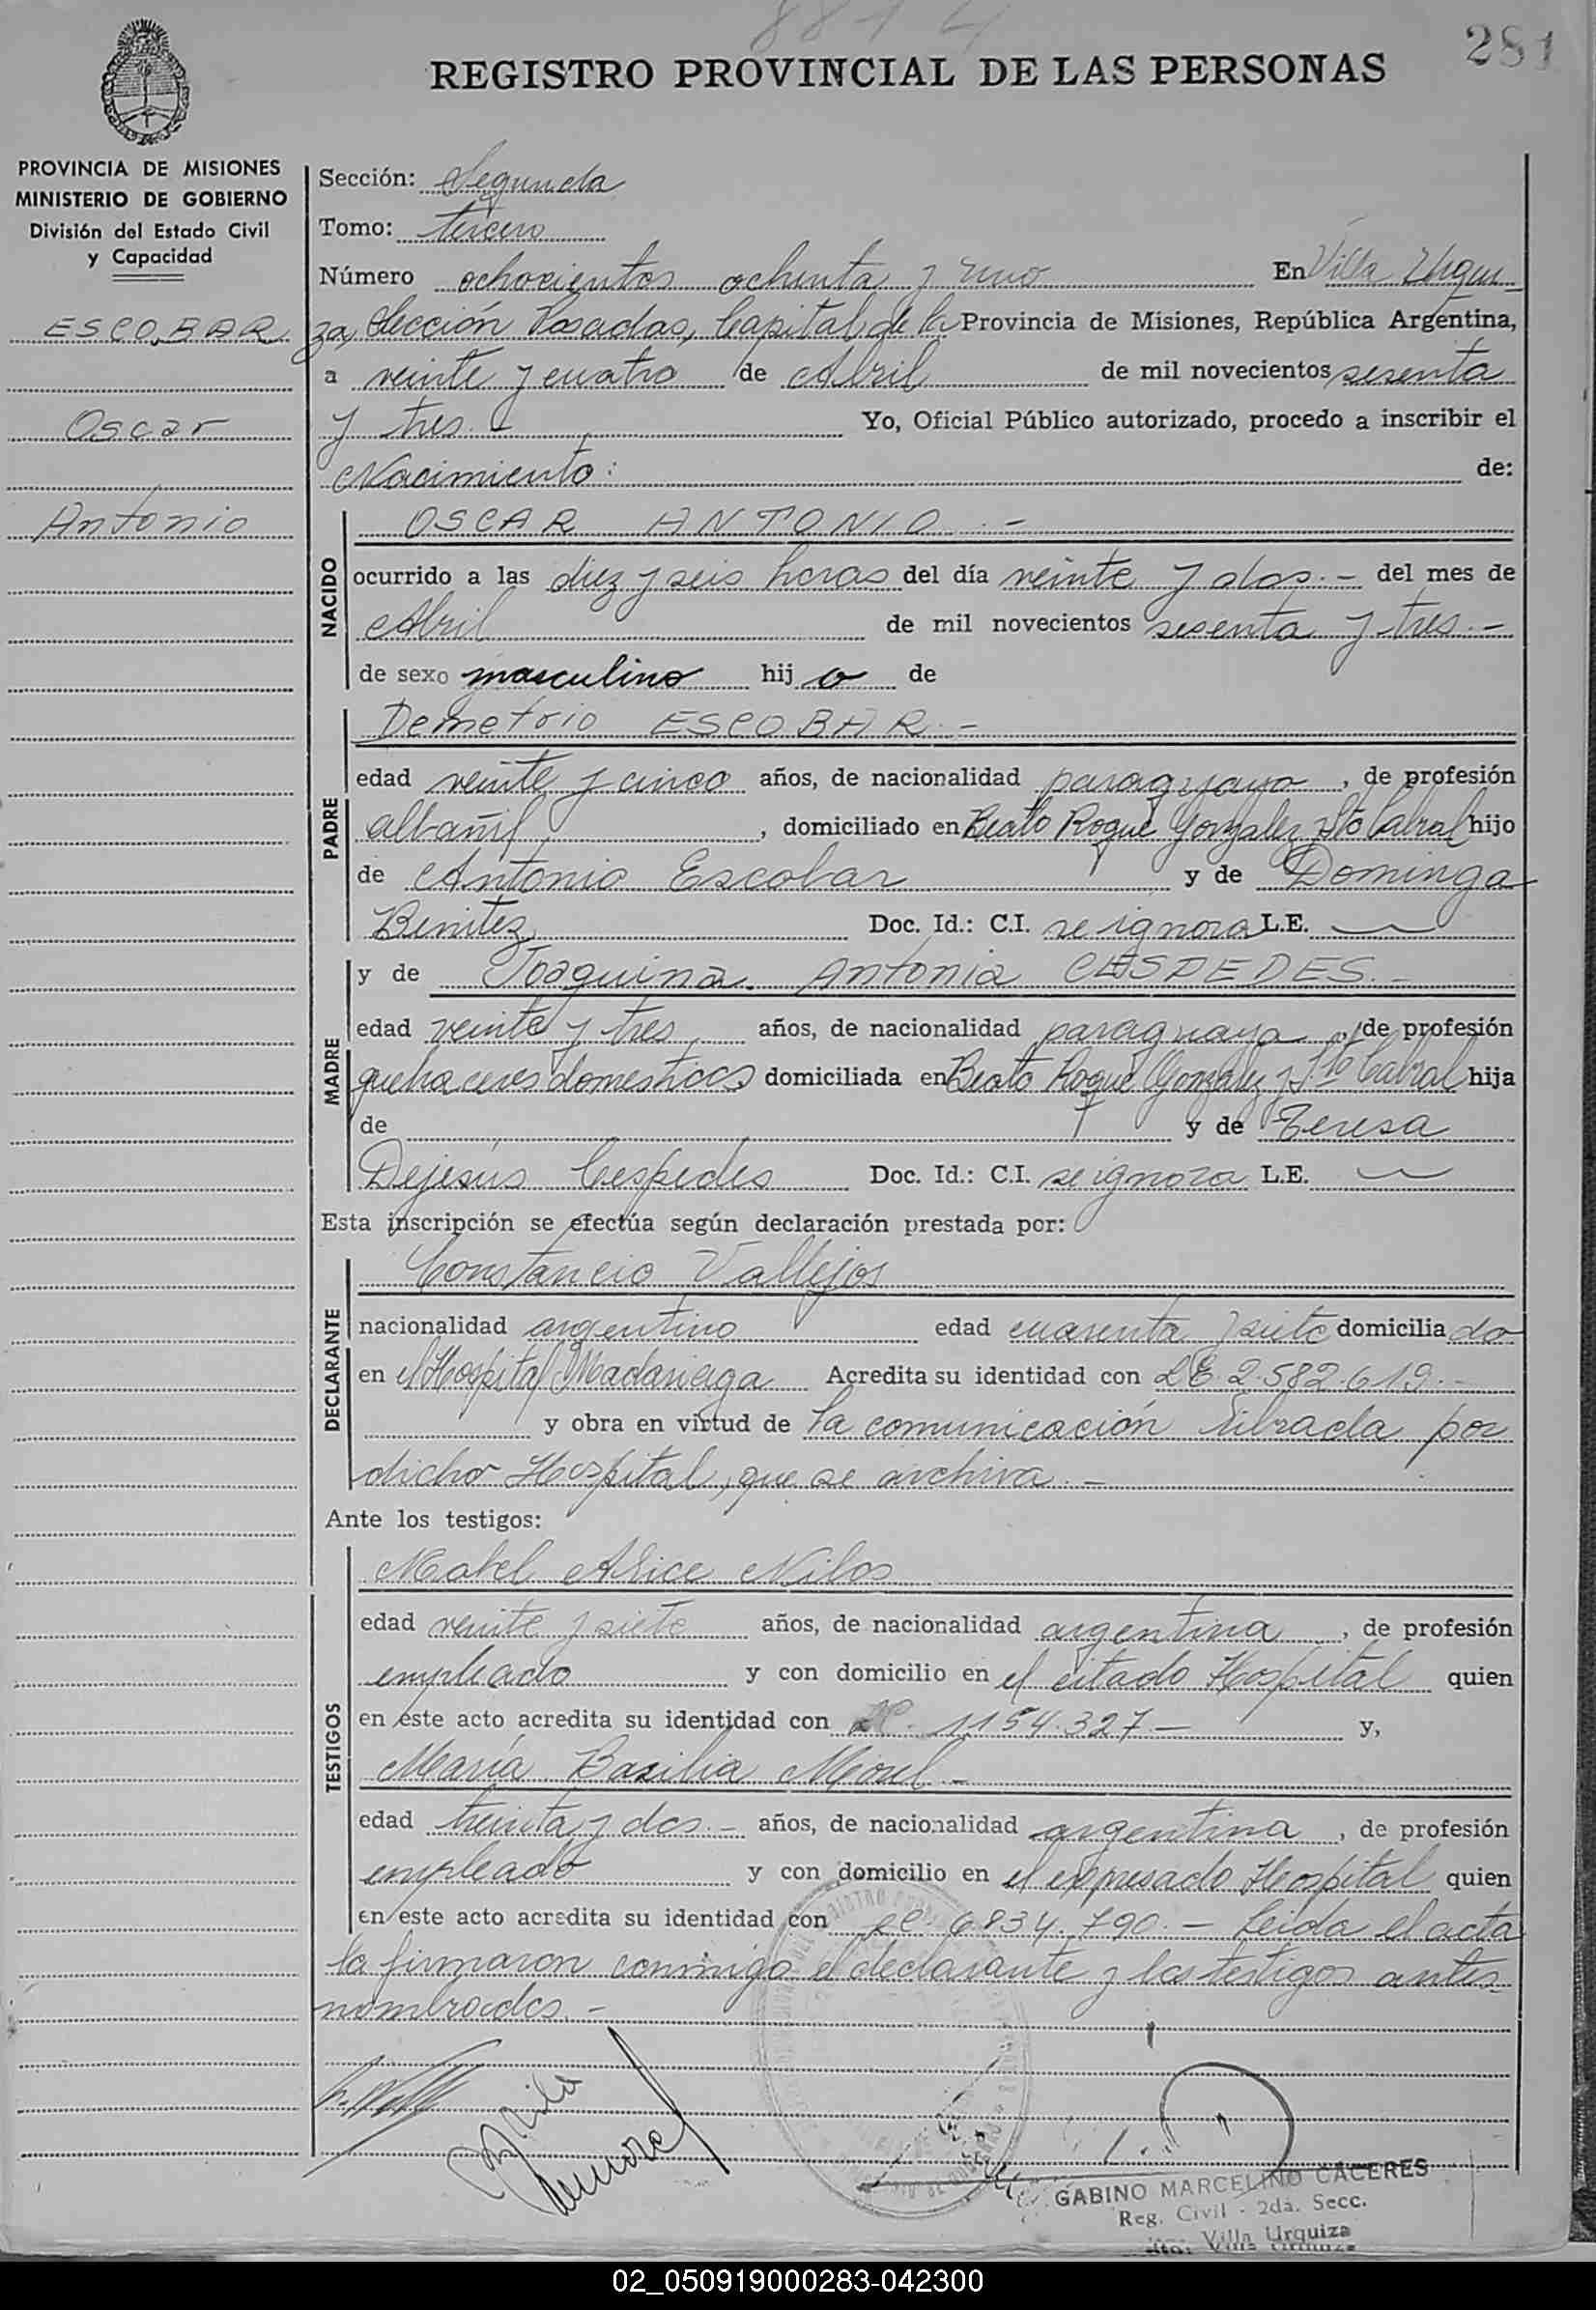 281
REGISTRO PROVINCIAL DE LAS PERSONAS
PROVINCIA DE MISIONES
MINISTERIO DE GOBIERNO
División del Estado Civil
y Capacidad
ESCOBAR
Oscar
Antonio
Sección: Segunda
Tomo: tercero
Número ochocientos ochenta y uno En Villa Urqui
za, Sección Posadas, Capital de la Provincia de Misiones, República Argentina,
a veinte y cuatro de Abril de mil novecientos sesenta
y tres.- Yo, Oficial Público autorizado, procedo a inscribir el
Nacimiento: de:
NACIDO
OSCAR ANTONIO.-
ocurrido a las diez y seis horas del día veinte y dos.- del mes de
Abril de mil novecientos sesenta y tres.-
de sexo masculino hijo de
PADRE
Demetrio ESCOBAR.-
edad veinte y cinco años, de nacionalidad paraguaya, de profesión
albañil, domiciliado en Beato Roque Gonzalez y Sto Cabral hijo
de Antonio Escobar y de Dominga
Benitez Doc. Id.: C.I. se ignora L.E.
MADRE
y de Joaquina Antonia CESPEDES.-
edad veinte y tres años, de nacionalidad paraguaya, de profesión
quehaceres domesticos domiciliada en Beato Roque Gonzalez y Sto Cabral hija
de y de Teresa
Dejesús Cespedes Doc. Id.: C.I. se ignora L.E.
Esta inscripción se efectúa según declaración prestada por:
DECLARANTE
Constancio Vallejos
nacionalidad argentino edad cuarenta y siete domiciliado
en el Hospital Madariaga Acredita su identidad con LE. 2.582.619.-
y obra en virtud de la comunicación librada por
dicho Hospital, que se archiva.-
Ante los testigos:
TESTIGOS
Mabel Alice Nilos
edad veinte y siete años, de nacionalidad argentina, de profesión
empleado y con domicilio en el citado Hospital quien
en este acto acredita su identidad con 1154.327- y,
María Basilia Morel.-
edad treinta y dos.- años, de nacionalidad argentina, de profesión
empleado y con domicilio en el expresado Hospital quien
en este acto acredita su identidad con 6.834.790.- Leida el acta
la firmaron conmigo el declarante y los testigos antes
nombrados.-
GABINO MARCELINO CACERES
Reg. Civil - 2da. Secc.
Villa Urquiza
02_050919000283-042300